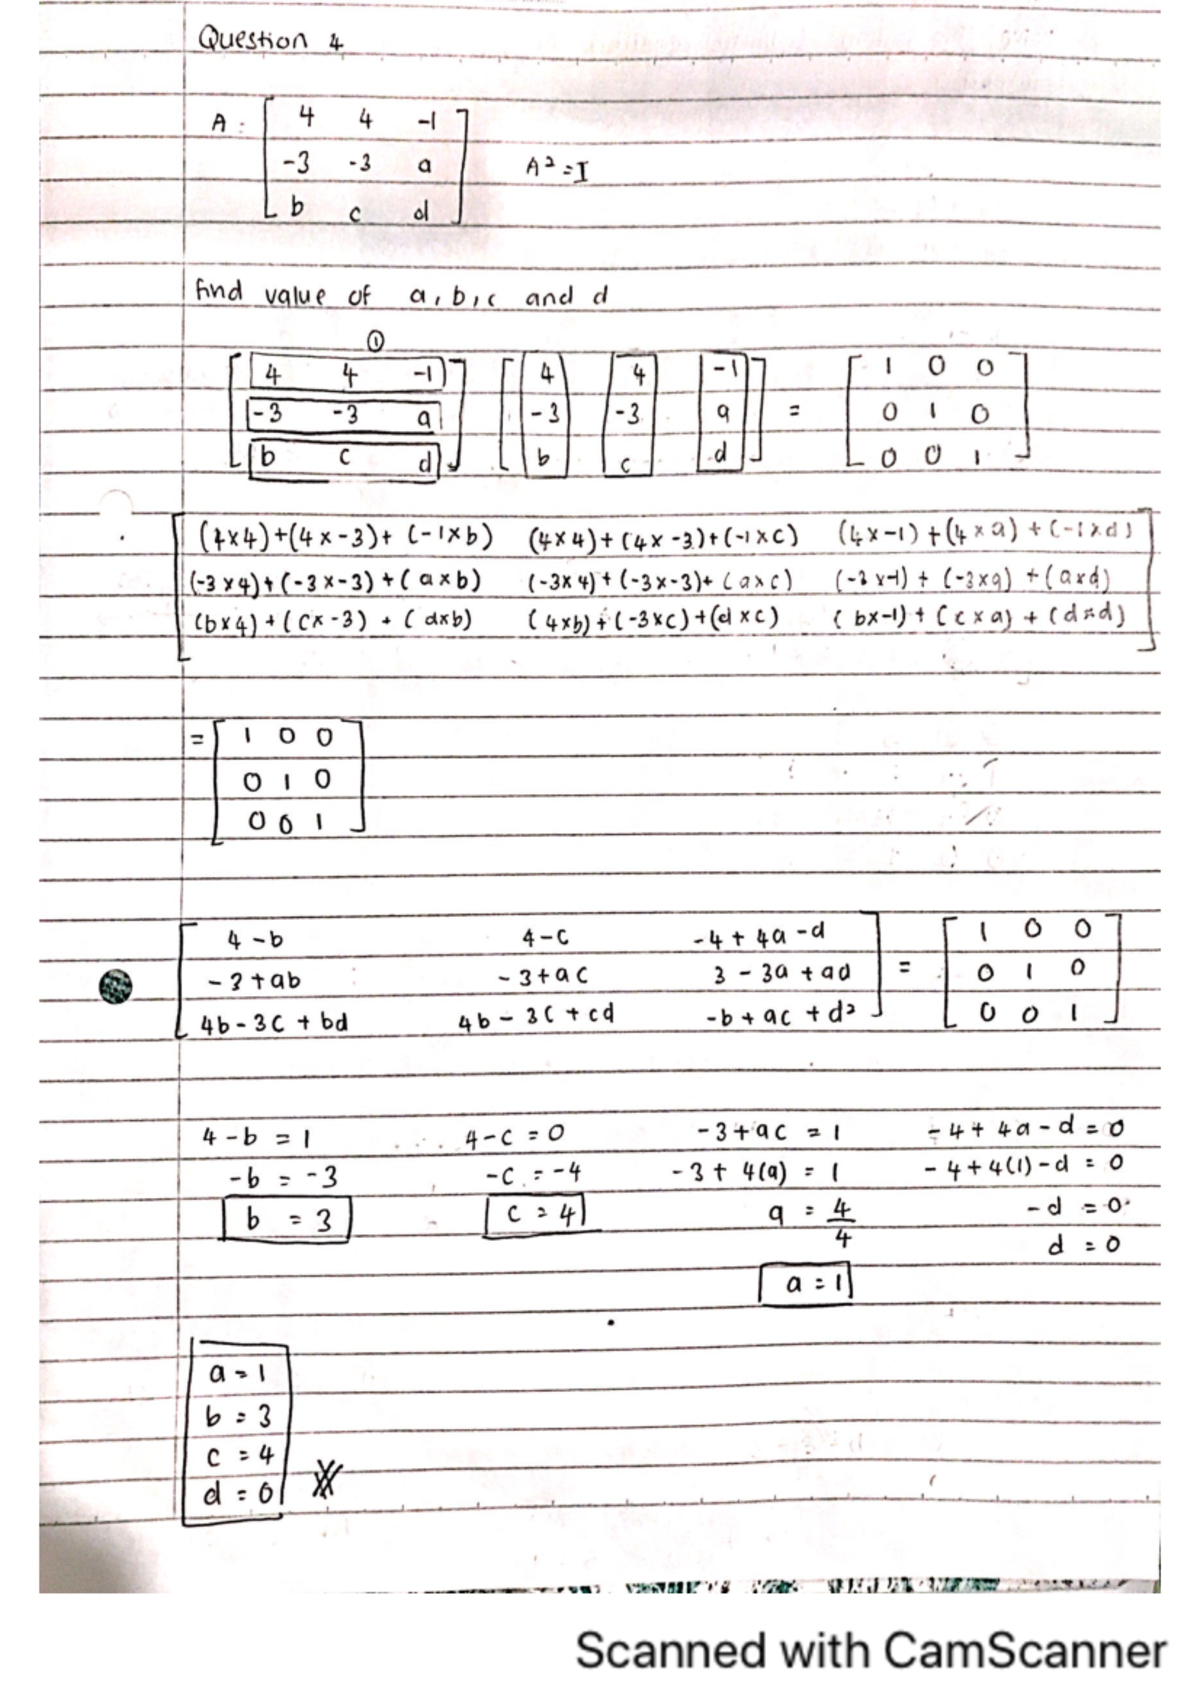 Question 4
A : [ 4 4 -1
-3 -3 a
b c d ]
A² = I
find value of a, b, c and d
①
[ 4 4 -1
-3 -3 a
b c d ] [ 4 4 -1
-3 -3 a
b c d ] = [ 1 0 0
0 1 0
0 0 1 ]
[ (4×4)+(4×-3)+(-1×b) (4×4)+(4×-3)+(-1×c) (4×-1)+(4×a)+(-1×d)
(-3×4)+(-3×-3)+(a×b) (-3×4)+(-3×-3)+(a×c) (-3×-1)+(-3×a)+(a×d)
(b×4)+(c×-3)+(d×b) (4×b)+(-3×c)+(d×c) (b×-1)+(c×a)+(d×d) ]
= [ 1 0 0
0 1 0
0 0 1 ]
[ 4-b 4-c -4+4a-d
-3+ab -3+ac 3-3a+ad
4b-3c+bd 4b-3c+cd -b+ac+d² ] = [ 1 0 0
0 1 0
0 0 1 ]
4-b = 1 4-c = 0 -3+ac = 1 -4+4a-d = 0
-b = -3 -c = -4 -3+4(a) = 1 -4+4(1)-d = 0
b = 3 c = 4 a = 4/4 -d = 0
d = 0
a = 1
a = 1
b = 3
c = 4
d = 0
Scanned with CamScanner